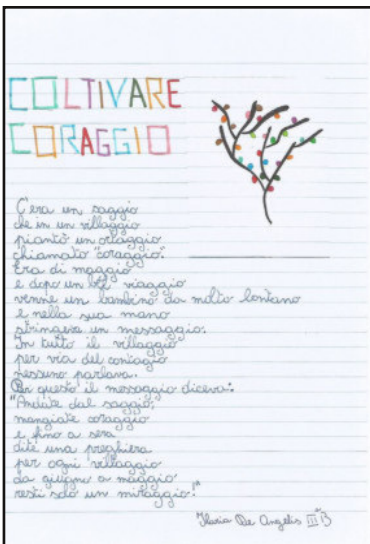 COLTIVARE
CORAGGIO
C'era un saggio
che in un villaggio
piantò un ortaggio
chiamato "coraggio".
Era di maggio
e dopo un bel viaggio
venne un bambino da molto lontano
e nella sua mano
stringeva un messaggio.
In tutto il villaggio
per via del contagio
nessuno parlava.
Per questo il messaggio diceva:
"Andate dal saggio,
mangiate coraggio
e fino a sera
dite una preghiera
per ogni villaggio
da giugno a maggio
resti solo un miraggio!"
Ilaria De Angelis III B